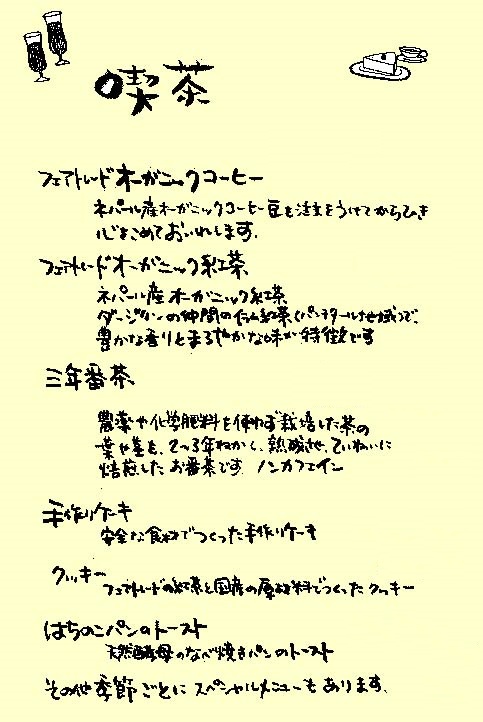 喫茶
フェアトレードオーガニックコーヒー
ネパール産オーガニックコーヒー豆を注文をうけてからひき
心をこめておいれします。
フェアトレードオーガニック紅茶
ネパール産オーガニック紅茶
ダージリンの仲間の仏紅茶(パンチタール地域)で、
豊かな香りとまろやかな味が特徴です
三年番茶
農薬や化学肥料を使わず栽培した茶の
葉や茎を、2〜3年ねかし、熟成させ、ていねいに
焙煎したお番茶です。ノンカフェイン
手作りケーキ
安全な食材でつくった手作りケーキ
クッキー
フェアトレードの紅茶と国産の原材料でつくったクッキー
はちのこパンのトースト
天然酵母のなべ焼きパンのトースト
その他季節ごとにスペシャルメニューもあります。